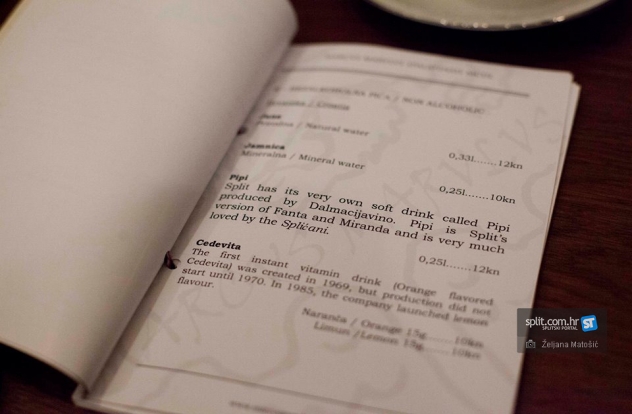 PIĆA / NON ALCOHOLIC
/ Natural water
0,33l.......12kn
Jamnica
Mineralna / Mineral water
0,25l.......10kn
Pipi
Split has its very own soft drink called Pipi
produced by Dalmacijavino. Pipi is Split's
version of Fanta and Miranda and is very much
loved by the Splićani.
0,25l.......12kn
Cedevita
The first instant vitamin drink (Orange flavored
Cedevita) was created in 1969, but production did not
start until 1970. In 1985, the company launched lemon
flavour.
Naranča / Orange 15g.......10kn
Limun /Lemon 15g.......10kn
split.com.hr ST
SPLITSKI PORTAL
Željana Matošić